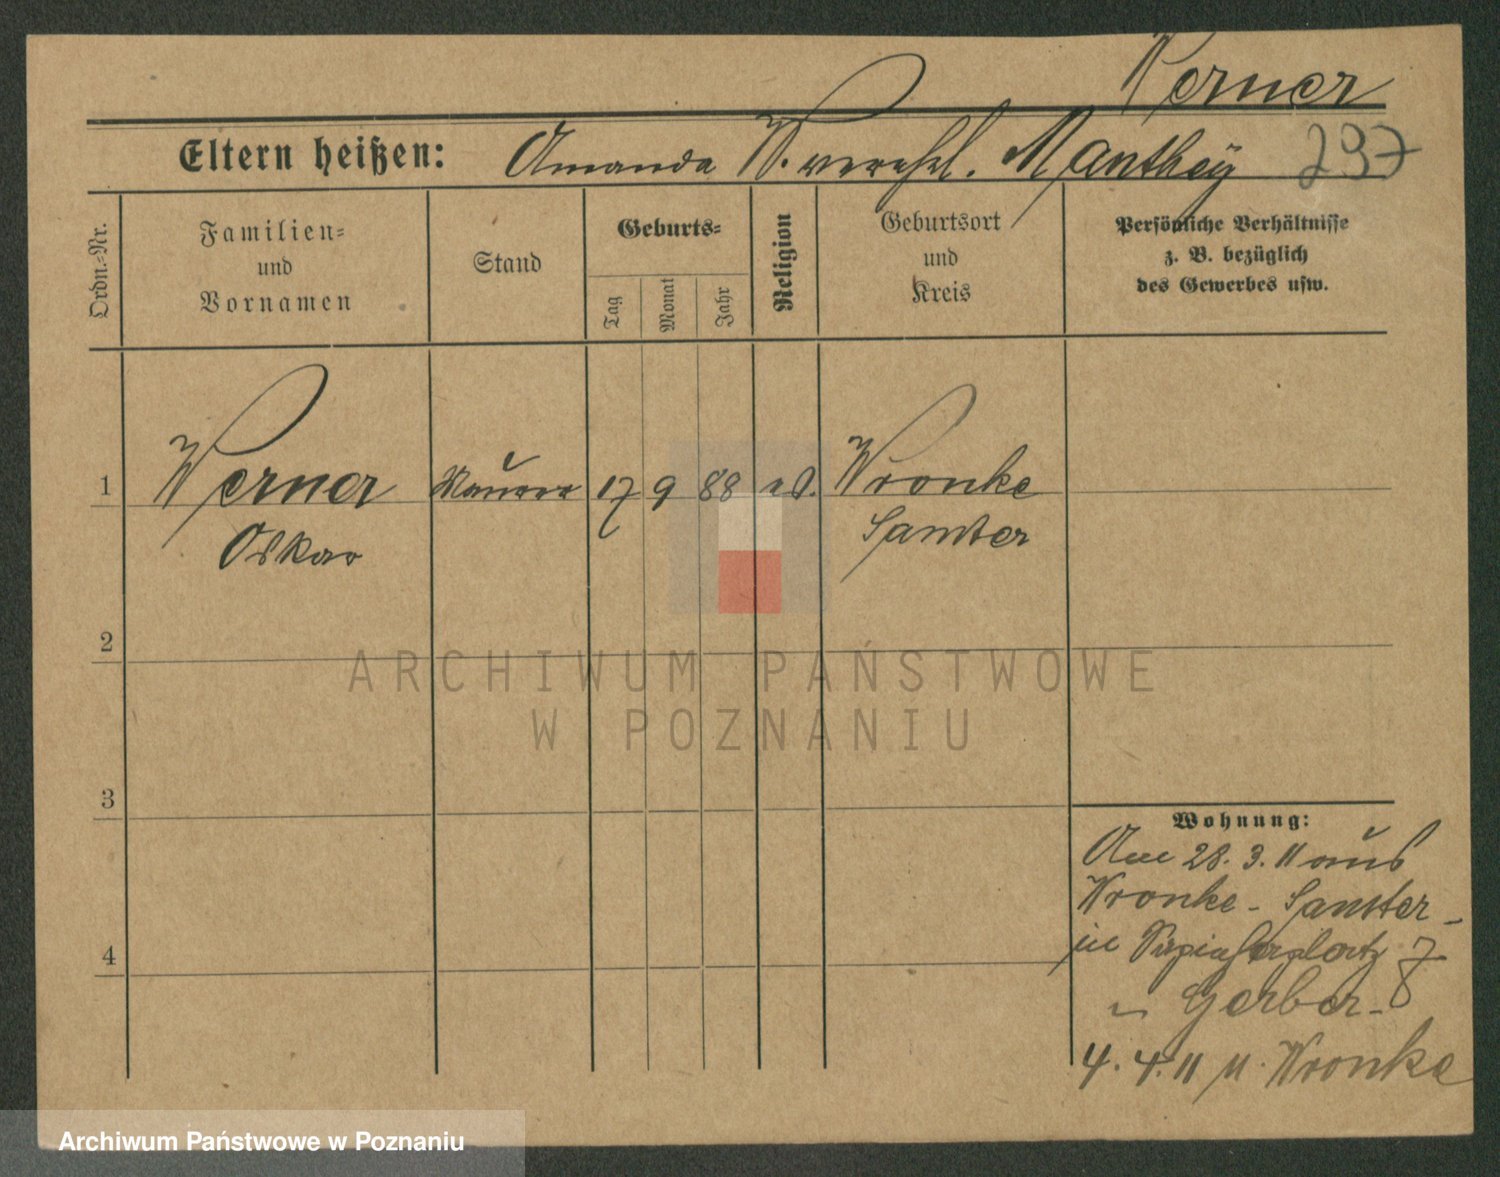 Werner
Eltern heißen: Amanda W. verehel. Manthey 297
Ordn.-Nr.
Familien-
und
Vornamen
Stand
Geburts-
Tag
Monat
Jahr
Religion
Geburtsort
und
Kreis
Persönliche Verhältnisse
z. B. bezüglich
des Gewerbes usw.
1 Werner Maurer 17 9 88 ev. Wronke
Oskar Samter
2
ARCHIWUM PAŃSTWOWE
W POZNANIU
3
Wohnung:
Am 28. 3. 11 aus
Wronke - Samter -
in 7
4
Gerber - 8
4. 4. 11 n. Wronke
Archiwum Państwowe w Poznaniu